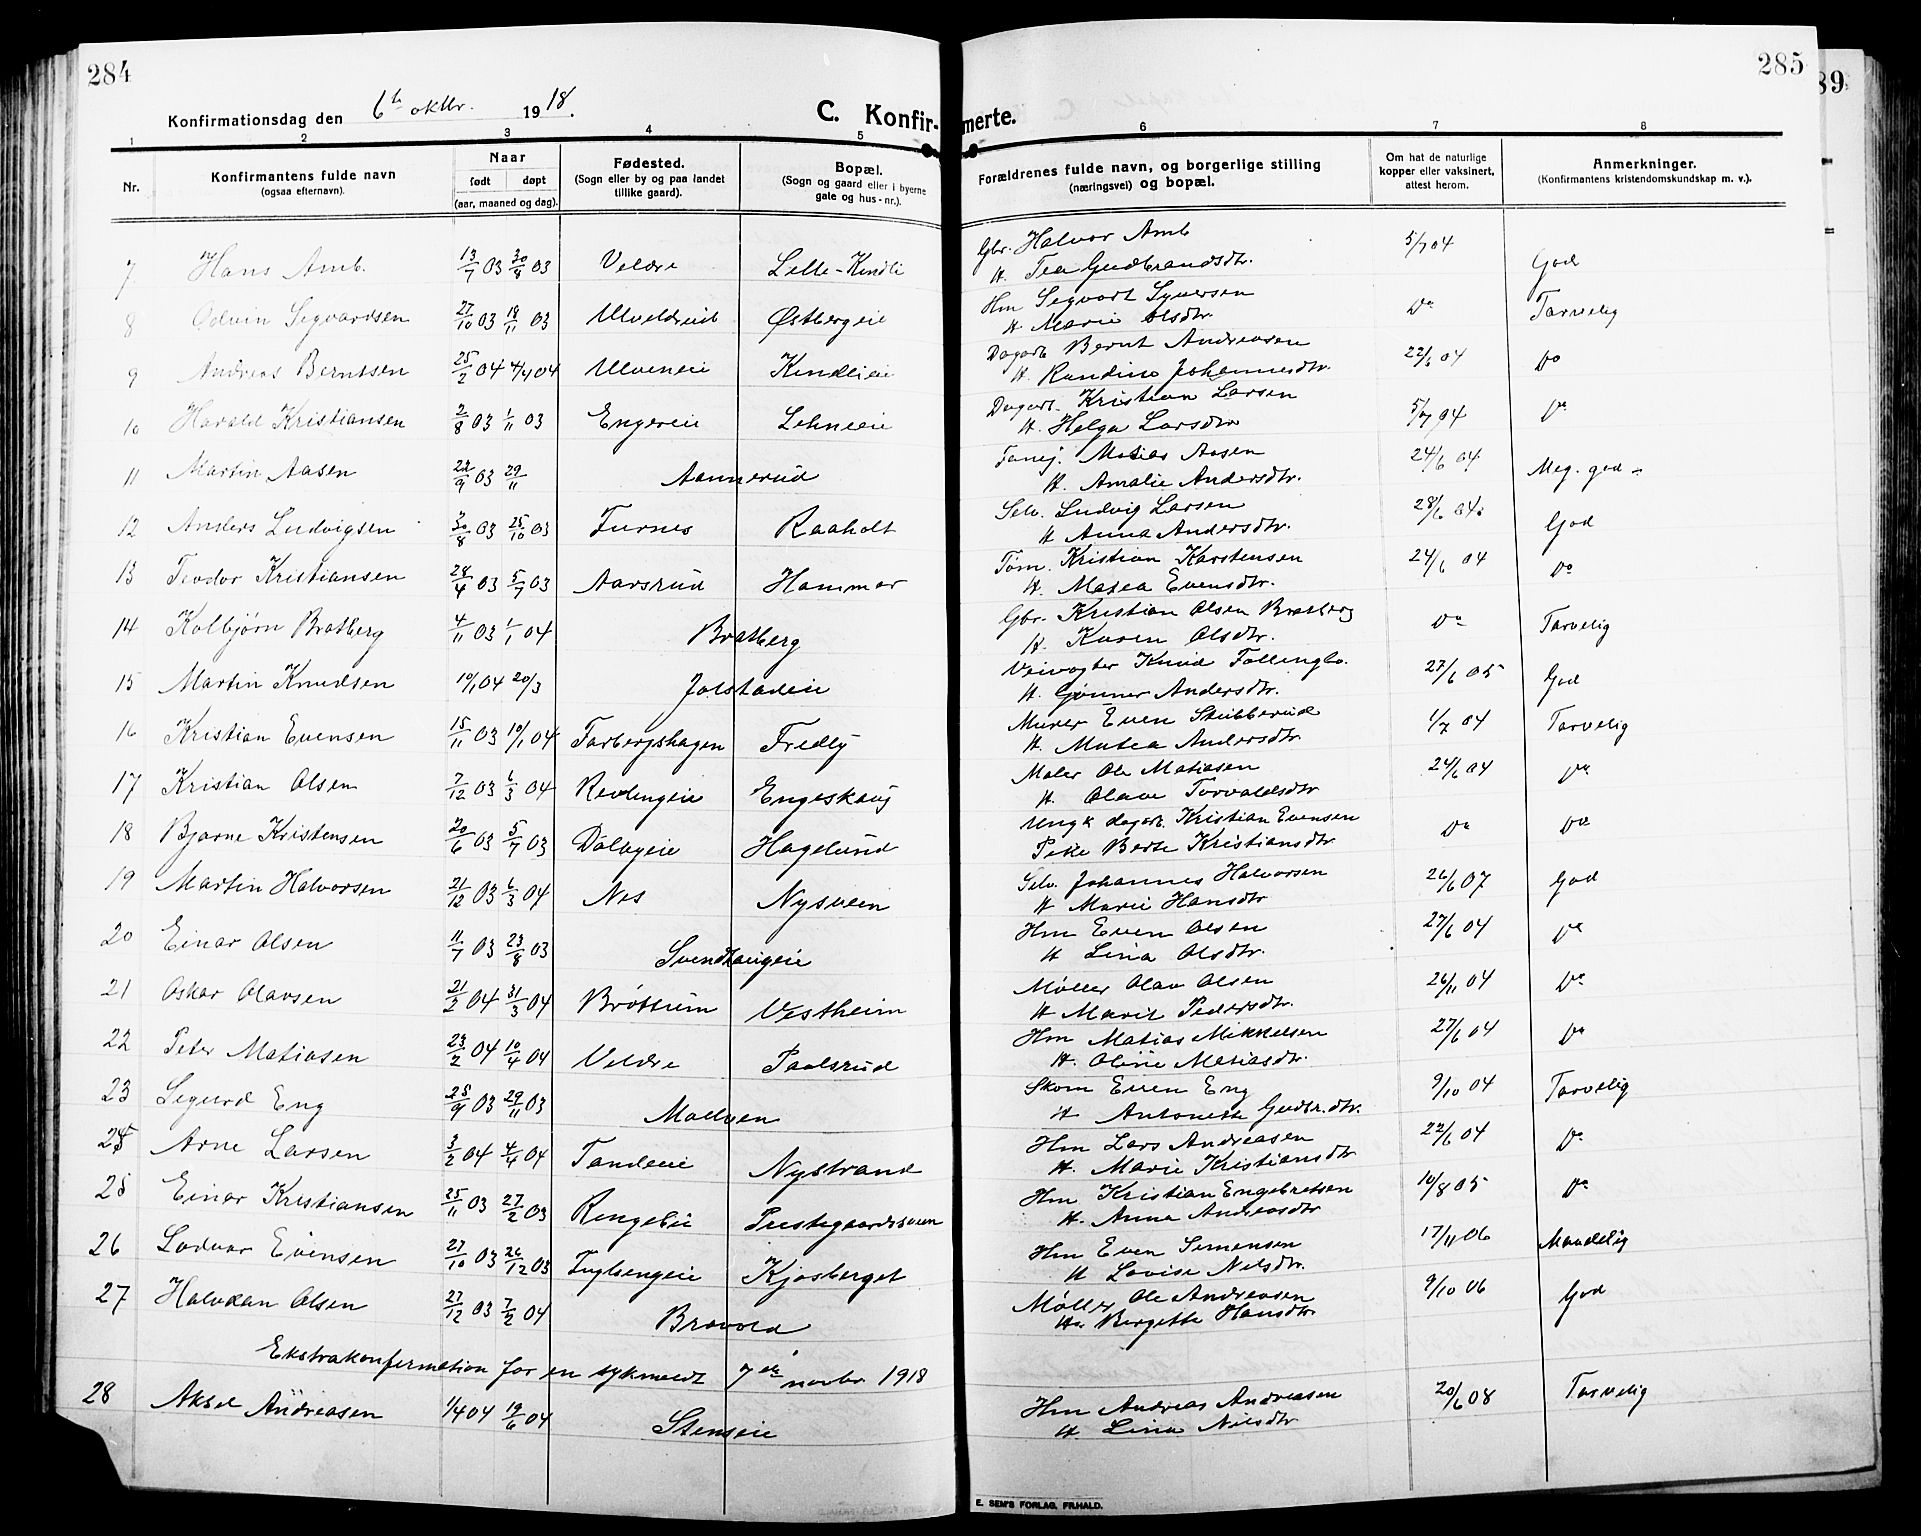 284
285
89
Konfirmationsdag den 6te oktbr. 1918.
C. Konfirmerte.
1 2 3 4 5 6 7 8
Nr.
Konfirmantens fulde navn
(ogsaa efternavn).
Naar
født døpt
(aar, maaned og dag).
Fødested.
(Sogn eller by og paa landet
tillike gaard).
Bopæl.
(Sogn og gaard eller i byerne
gate og hus-nr.).
Forældrenes fulde navn, og borgerlige stilling
(næringsvei) og bopæl.
Om hat de naturlige
kopper eller vaksinert,
attest herom.
Anmerkninger.
(Konfirmantens kristendomskundskap m. v.).
7 Hans Amb. 13/7 03 30/8 03 Veldre Lille-Kindli Gbr. Halvor Amb 5/7 04 God
H. Tea Gudbrandsdtr.
8 Odvin Sigvardsen 27/10 03 18/11 03 Ulveldreie Østbergeie Hm Sigvart Syversen Do Tarvelig
H. Marie Olsdtr
9 Andreas Berntsen 25/2 04 4/4 04 Ulveneie Kindlieie Dagarb Bernt Andreasen 22/6 04 Do
H. Randine Johannesdtr.
10 Harald Kristiansen 2/8 03 1/11 03 Engereie Lehneie Dagarb. Kristian Larsen 5/7 04 Do
H. Helga Larsdtr
11 Martin Aasen 22/9 03 29/11 Aannerud Matias Aasen 24/6 04 Meg. god
H. Amalie Andersdtr.
12 Anders Ludvigsen 30/8 03 25/10 03 Furnes Raaholt Selv. Ludvig Larsen 28/6 04 God
H Anna Andersdtr.
13 Teodor Kristiansen 28/4 03 5/7 03 Aarsrud Hammer Tøm. Kristian Karstensen 24/6 04 Do
H. Matea Evensdtr.
14 Kolbjørn Bratberg 4/11 03 1/1 04 Bratberg Gbr. Kristian Olsen Bratberg Do Tarvelig
H. Karen Olsdtr.
15 Martin Knudsen 10/1 04 20/3 Jolstadeie Veivogter Knud Follinglo. 27/6 05 God
H. Gunner Andersdtr.
16 Kristian Evensen 15/11 03 10/1 04 Farbergshagen Fredly Murer Even Stubberud 1/7 04 Tarvelig
H. Matea Andersdtr.
17 Kristian Olsen 7/12 03 6/3 04 Revlingeie Engeskaug Maler Ole Matiasen 24/6 04 Do
H. Olave Torvaldsdtr
18 Bjarne Kristensen 20/6 03 5/7 03 Dalbyeie Hagelund Ungk dagarb. Kristian Evensen Do Do
Pike Berte Kristiansdtr
19 Martin Halvorsen 21/12 03 6/3 04 Nes Nysveen Selv. Johannes Halvorsen 26/6 07 God
H Marie Hansdtr
20 Einar Olsen 11/7 03 23/8 03 Svendhaugeie Hm Even Olsen 27/6 04 Do
H Lina Olsdtr.
21 Oskar Olavsen 21/2 04 31/3 04 Brøttum Vestheim Møller Olav Olsen 26/11 04 Do
H Marit Pedersdtr.
22 Peter Matiasen 23/2 04 10/4 04 Veldre Paalsrud Hm Matias Mikkelsen 27/6 04 Do
H. Oline Matiasdtr.
23 Sigurd Eng 25/9 03 29/11 03 Maelven Skom Even Eng 9/10 04 Tarvelig
H Antonette Gudbr.dtr.
24 Arne Larsen 3/2 04 4/4 04 Tandeeie Nystrand Hm Lars Andreasen 22/6 04 Do
H. Marie Kristiansdtr
25 Einar Kristiansen 25/11 03 27/2 03 Ringebu Prestegaardsveen Hm Kristian Engebretsen 10/8 05 Do
H. Anna Andreasdtr
26 Lodvar Evensen 27/10 03 26/12 03 Fuglsengeie Kjosberget Hm Even Simensen 17/11 06 Maadelig
H Lovise Nilsdtr.
27 Halvdan Olsen 27/12 03 7/2 04 Bravold Møller Ole Andreasen 9/10 06 God
H. Bergette Hansdtr.
Ekstrakonfirmation for en sykmeldt 7de novbr 1918
28 Aksel Andreasen 1/4 04 19/6 04 Stenseie Hm Andreas Andreasen 20/6 08 Tarvelig
H. Lina Nilsdtr
E. SEM'S FORLAG, FR.HALD.